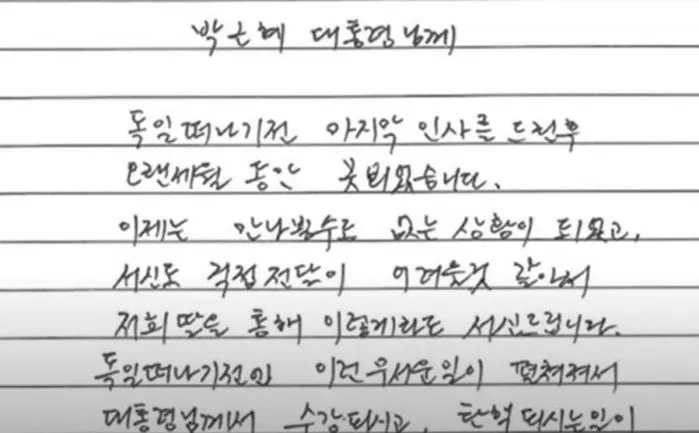 박근혜 대통령님께
독일떠나기전 마지막 인사를 드린후
오랜세월 동안 못뵈었습니다.
이제는 만나뵐수도 없는 상황이 되었고,
서신도 직접전달이 어려울것 같아서
저희딸을 통해 이렇게라도 서신드립니다.
독일떠나기전에 이런무서운일이 펼쳐져서
대통령님께서 수감되시고, 탄핵되시는일이